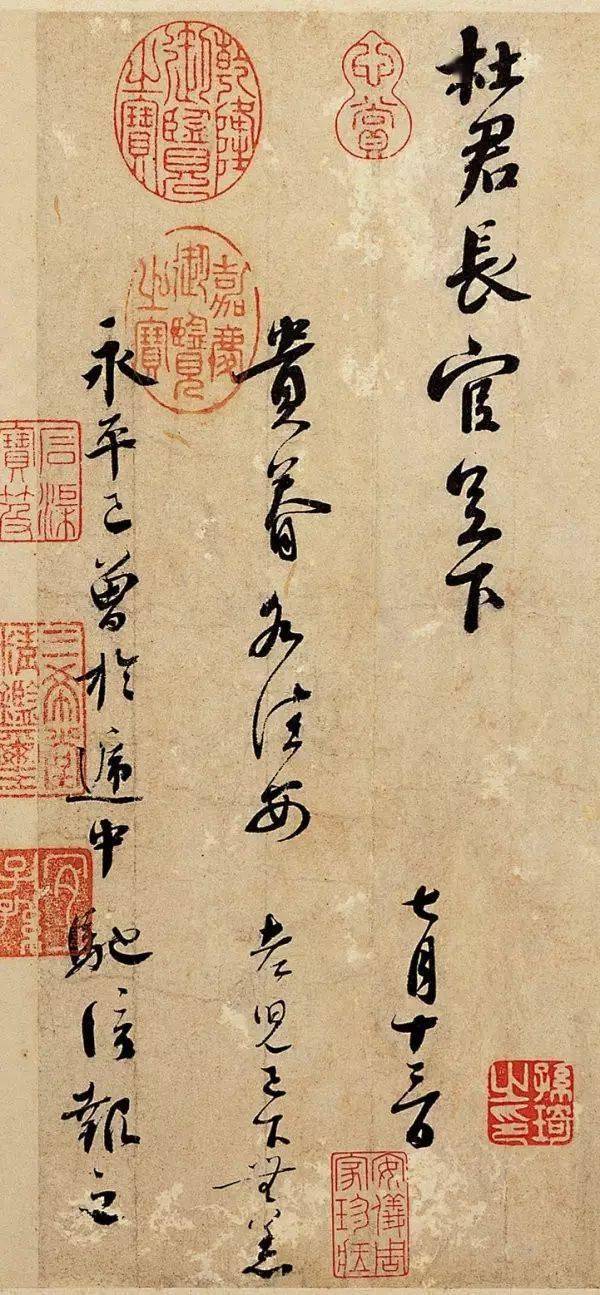 杜君長官足下
七月十三日
貴眷各佳安 老兒已下無恙
永平已曾於遞中 馳信報之
心賞
乾隆御覽之寶
嘉慶御覽之寶
安儀周家珍藏
石渠寶笈
三希堂精鑑璽
宜子孫